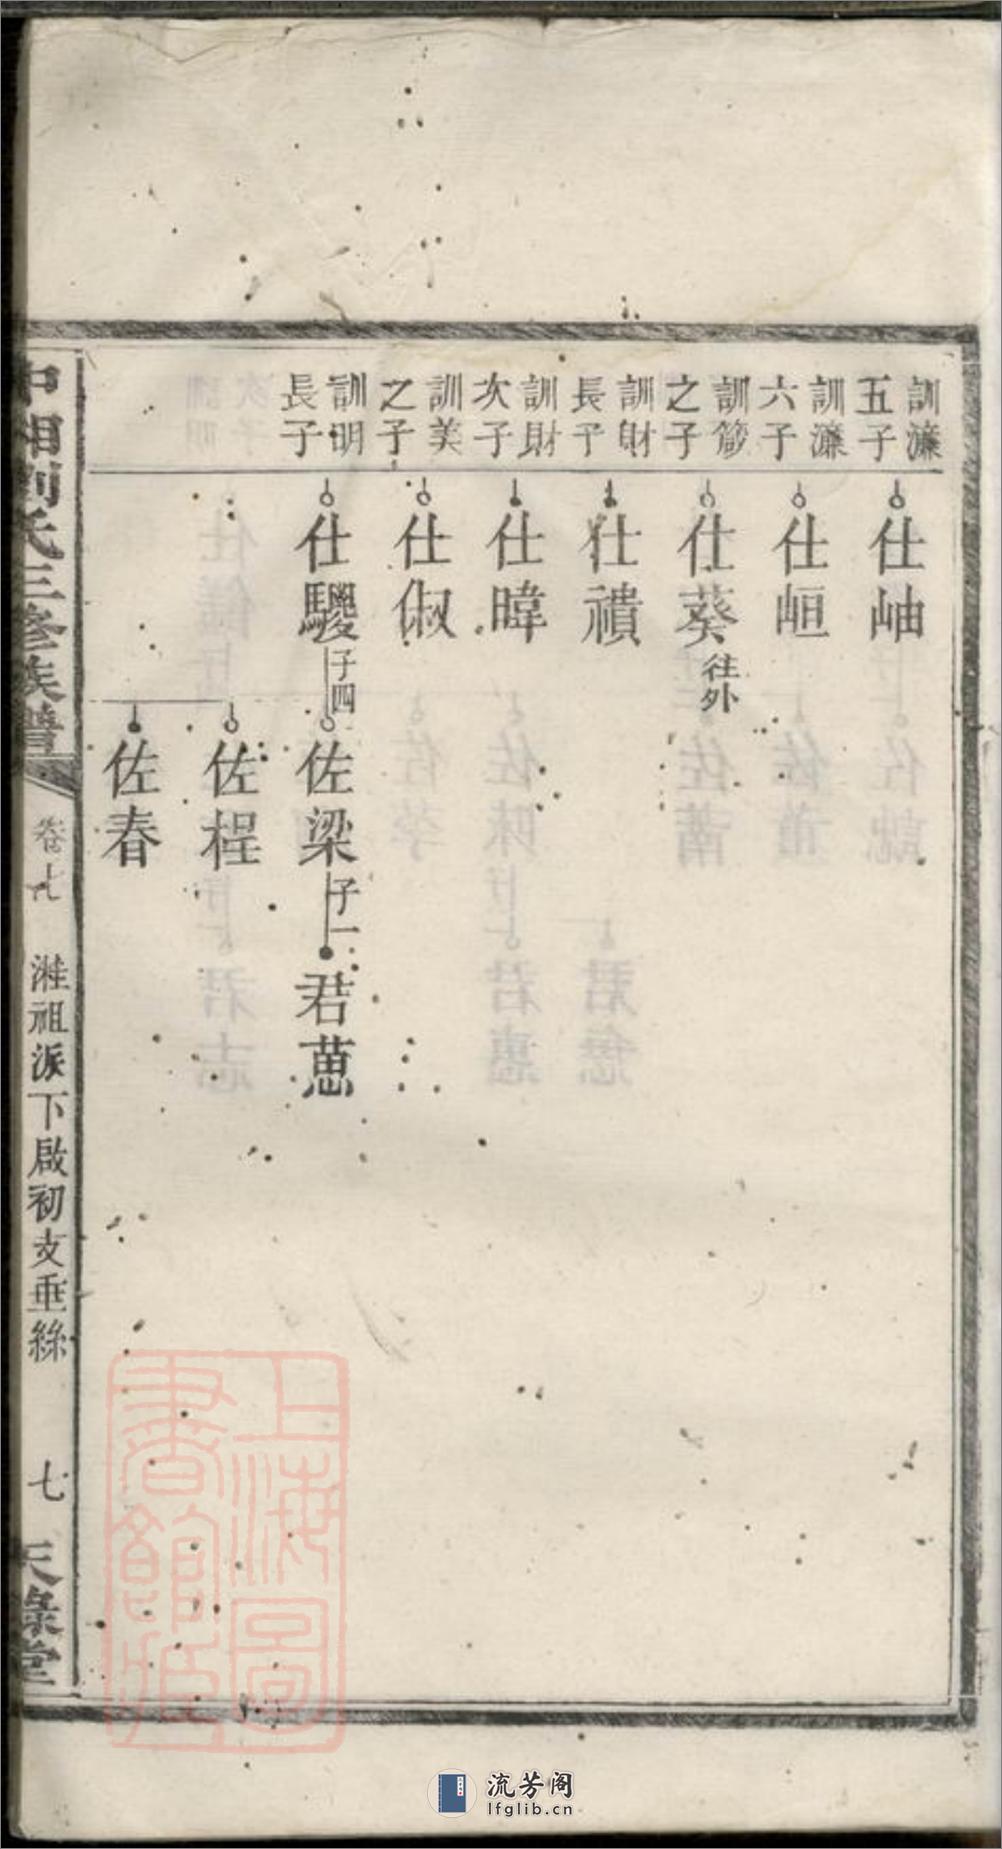 訓濂五子
仕岫
訓濂六子
仕峘
訓箴之子
仕葵往外
訓財長子
仕襀
訓財次子
仕暐
訓美之子
仕俶
訓明長子
仕驄子四
佐梁子一
君蒽
佐桯
佐春
中湘劉氏三修族譜
卷七
溎祖派下啟初支垂絲
七
天祿堂
上海圖書館藏
流芳阁
lfglib.cn